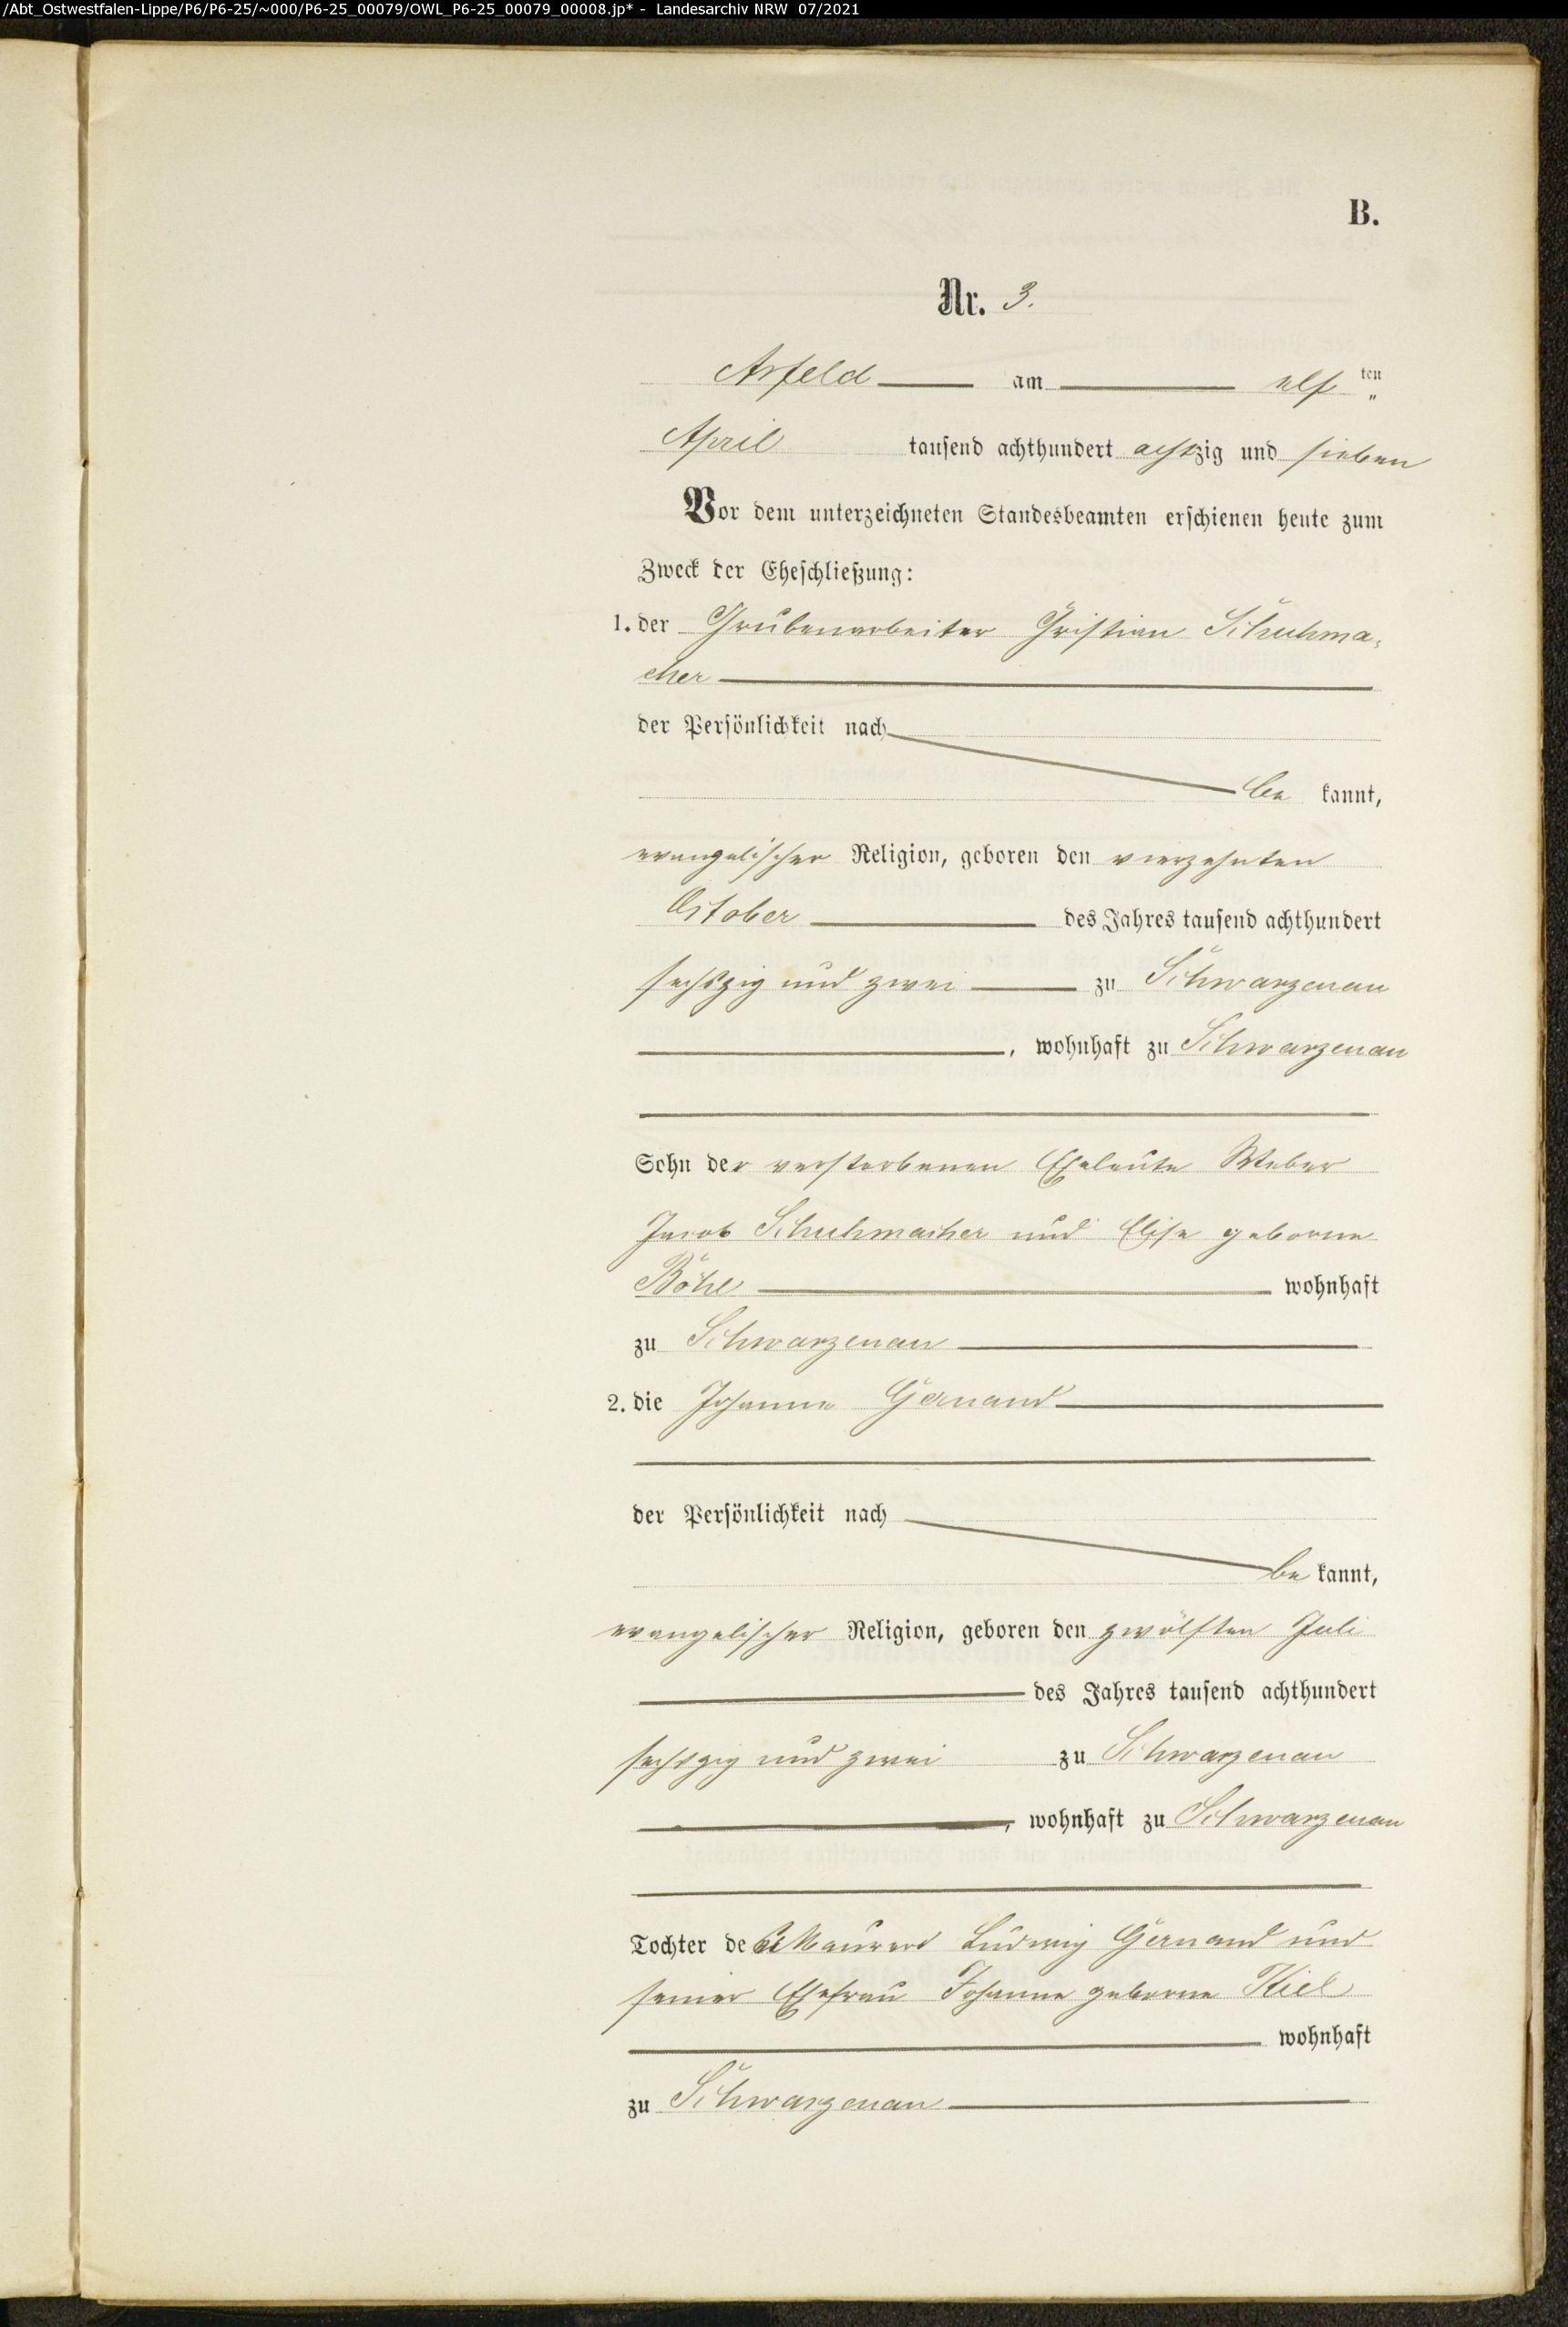 /Abt_Ostwestfalen-Lippe/P6/P6-25/~000/P6-25_00079/OWL_P6-25_00079_00008.jp* - Landesarchiv NRW 07/2021
B.
Nr. 3.
Arfeld am elf ten
April tausend achthundert achtzig und sieben
Vor dem unterzeichneten Standesbeamten erschienen heute zum
Zweck der Eheschließung:
1. der Grubenarbeiter Christian Schuhma-
cher
der Persönlichkeit nach
be kannt,
evangelischer Religion, geboren den vierzehnten
October des Jahres tausend achthundert
sechszig und zwei zu Schwarzenau
, wohnhaft zu Schwarzenau
Sohn der verstorbenen Eheleute Weber
Jacob Schuhmacher und Elise geborne
Böhl wohnhaft
zu Schwarzenau
2. die Johanne Gernand
der Persönlichkeit nach
be kannt,
evangelischer Religion, geboren den zwölften Juli
des Jahres tausend achthundert
sechszig und zwei zu Schwarzenau
, wohnhaft zu Schwarzenau
Tochter des Maurers Ludwig Gernand und
seiner Ehefrau Johanne geborne Kiel
wohnhaft
zu Schwarzenau